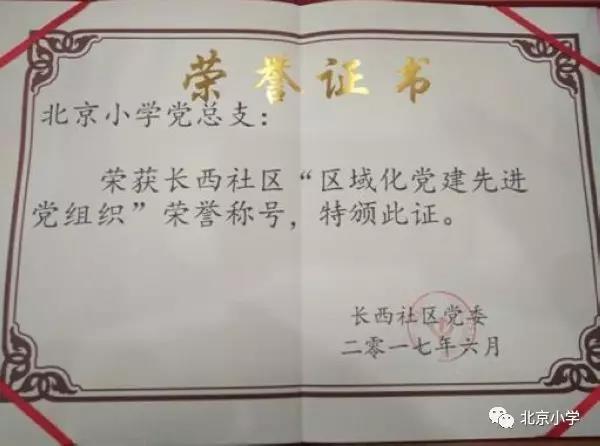 荣誉证书
北京小学党总支：
荣获长西社区“区域化党建先进
党组织”荣誉称号，特颁此证。
长西社区党委
二零一七年六月
北京小学